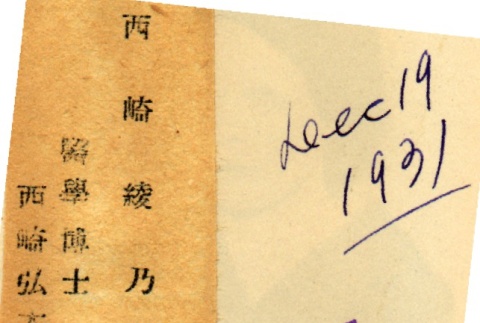 西崎綾乃
醫學博士
西崎弘
Dec 19
1931